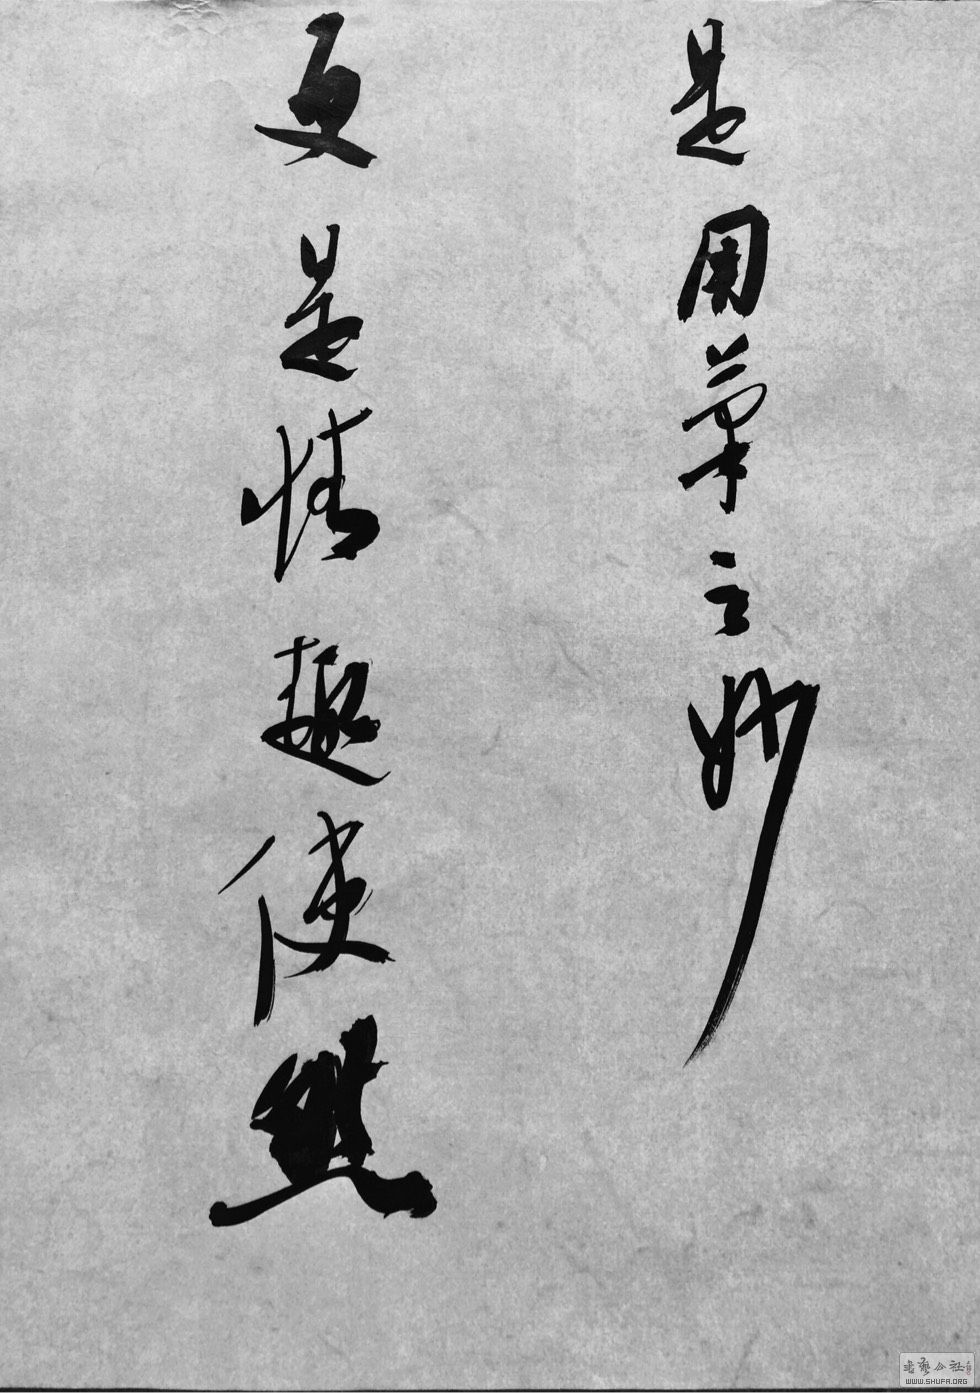 是用筆之妙
更是情趣使然
書藝公社
WWW.SHUFA.ORG